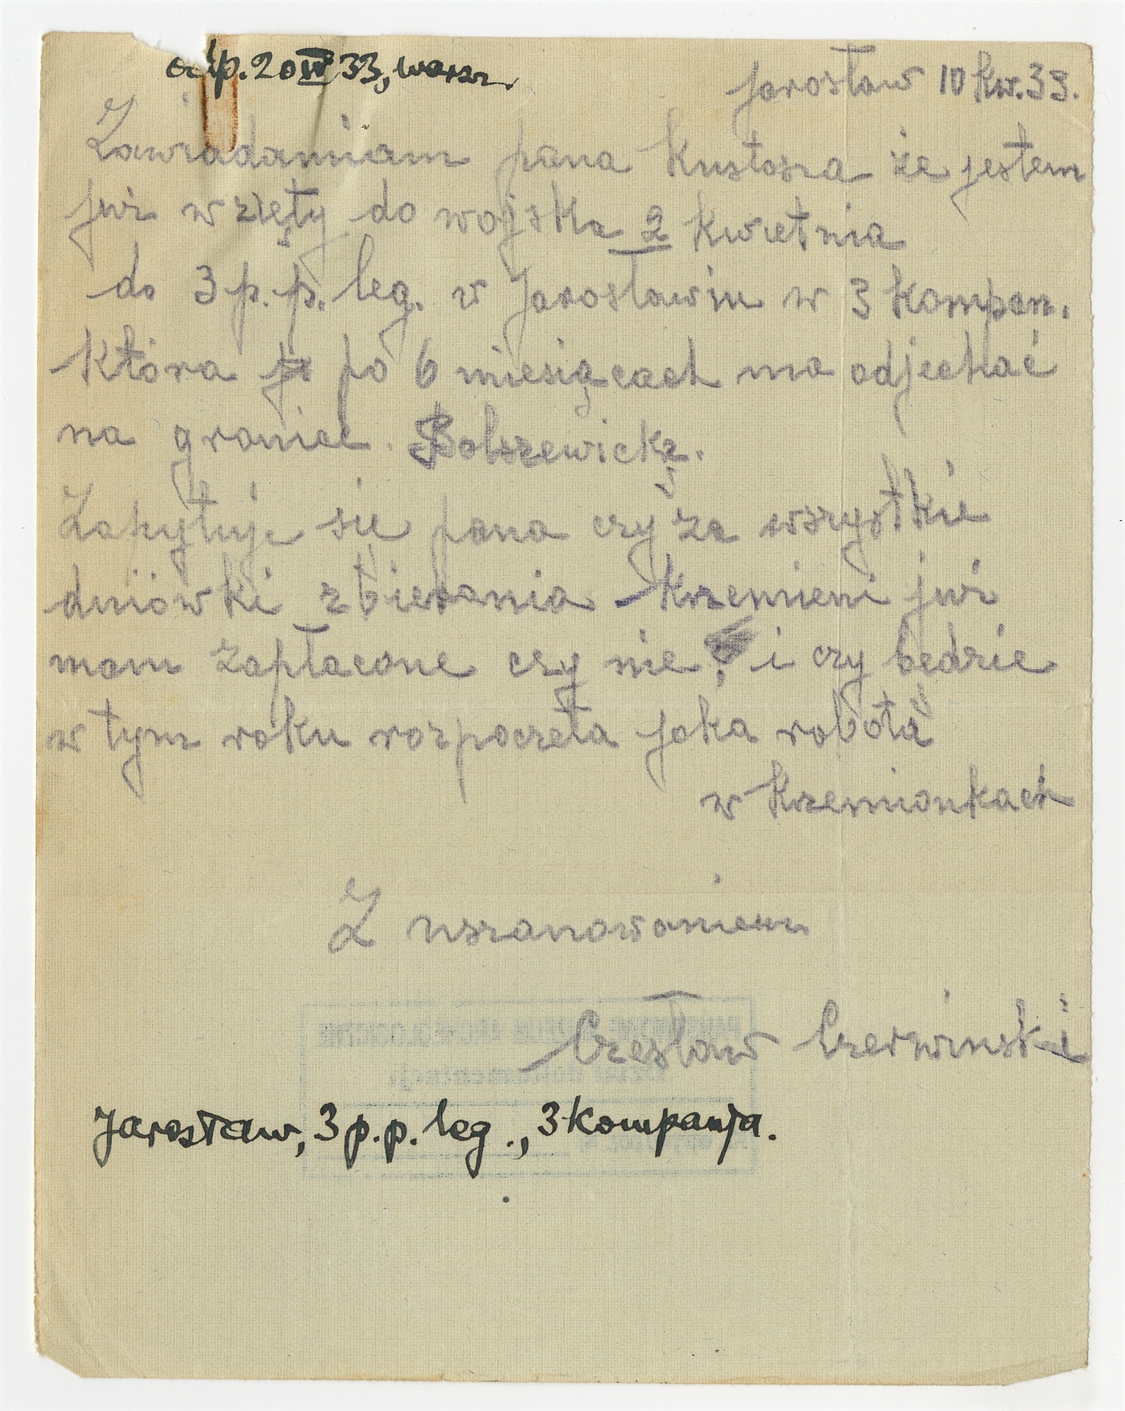 odp. 20 IV 33, warsz.
Jarosław 10 kw. 33.
Zawiadamiam pana Kustosza że jestem
już wzięty do wojska 2 kwietnia
do 3 p. p. leg. w Jarosławiu w 3 kompan.
która po 6 miesiącach ma odjechać
na granice. Bolszewicką.
Zapytuje się pana czy za wszystkie
dniówki zbierania krzemieni już
mam zapłacone czy nie? i czy będzie
w tym roku rozpoczęta jaka robota
w Krzemionkach
Z uszanowaniem
Czesław Czerwinski
Jarosław, 3 p. p. leg., 3 kompanja.